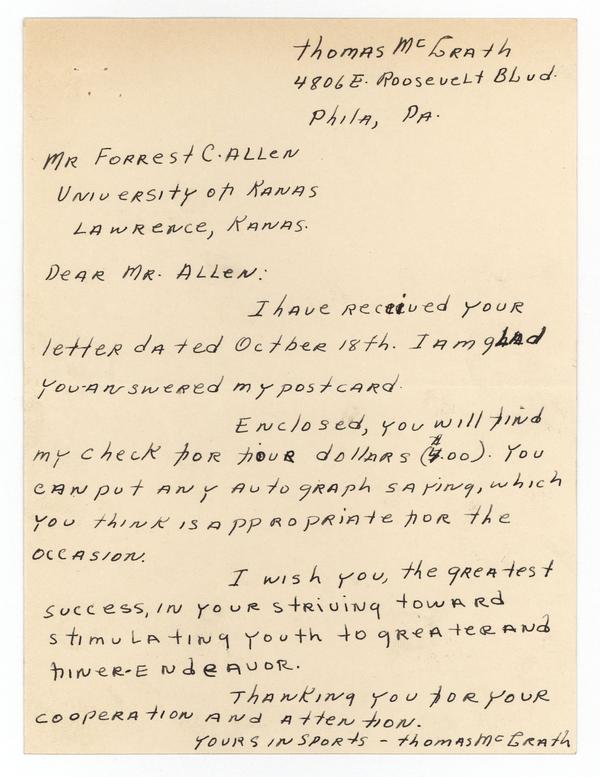 Thomas McGrath
4806 E. Roosevelt Blvd.
Phila, Pa.
Mr Forrest C. Allen
University of Kanas
Lawrence, Kanas.
Dear Mr. Allen:
I have received your
letter dated Octber 18th. I am glad
you answered my postcard.
Enclosed, you will find
my check for four dollars ($4.00). You
can put any autograph saying, which
you think is appropriate for the
occasion.
I wish you, the greatest
success, in your striving toward
stimulating youth to greater and
finer-Endeavor.
Thanking you for your
cooperation and attention.
Yours in Sports - Thomas McGrath